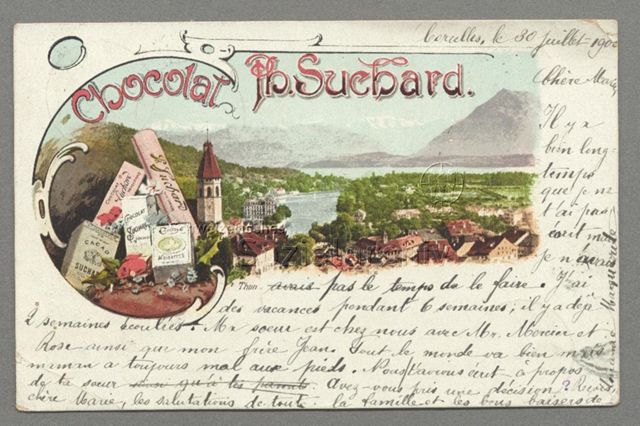 Corcelles, le 30 Juillet 1900
Chocolat Ph. Suchard.
Chère Marie,
Il y a
bien long-
temps
que je ne
t'ai pas
mais
je n'avais
Thun
avais pas le temps de le faire. J'ai
des vacances pendant 6 semaines; il y a déjà
2 semaines écoulées. Ma soeur est chez nous avec Mr. Mercier et
Rose ainsi que mon frère Jean. Tout le monde va bien mais
maman a toujours mal aux pieds. Nous t'avons écrit à propos
de ta soeur
Avez-vous pris une décision? Reçois,
chère Marie, les salutations de toute la famille et les bons baisers de
Marguerite
CACAO
SUCHARD
CHOCOLAT
SUCHARD